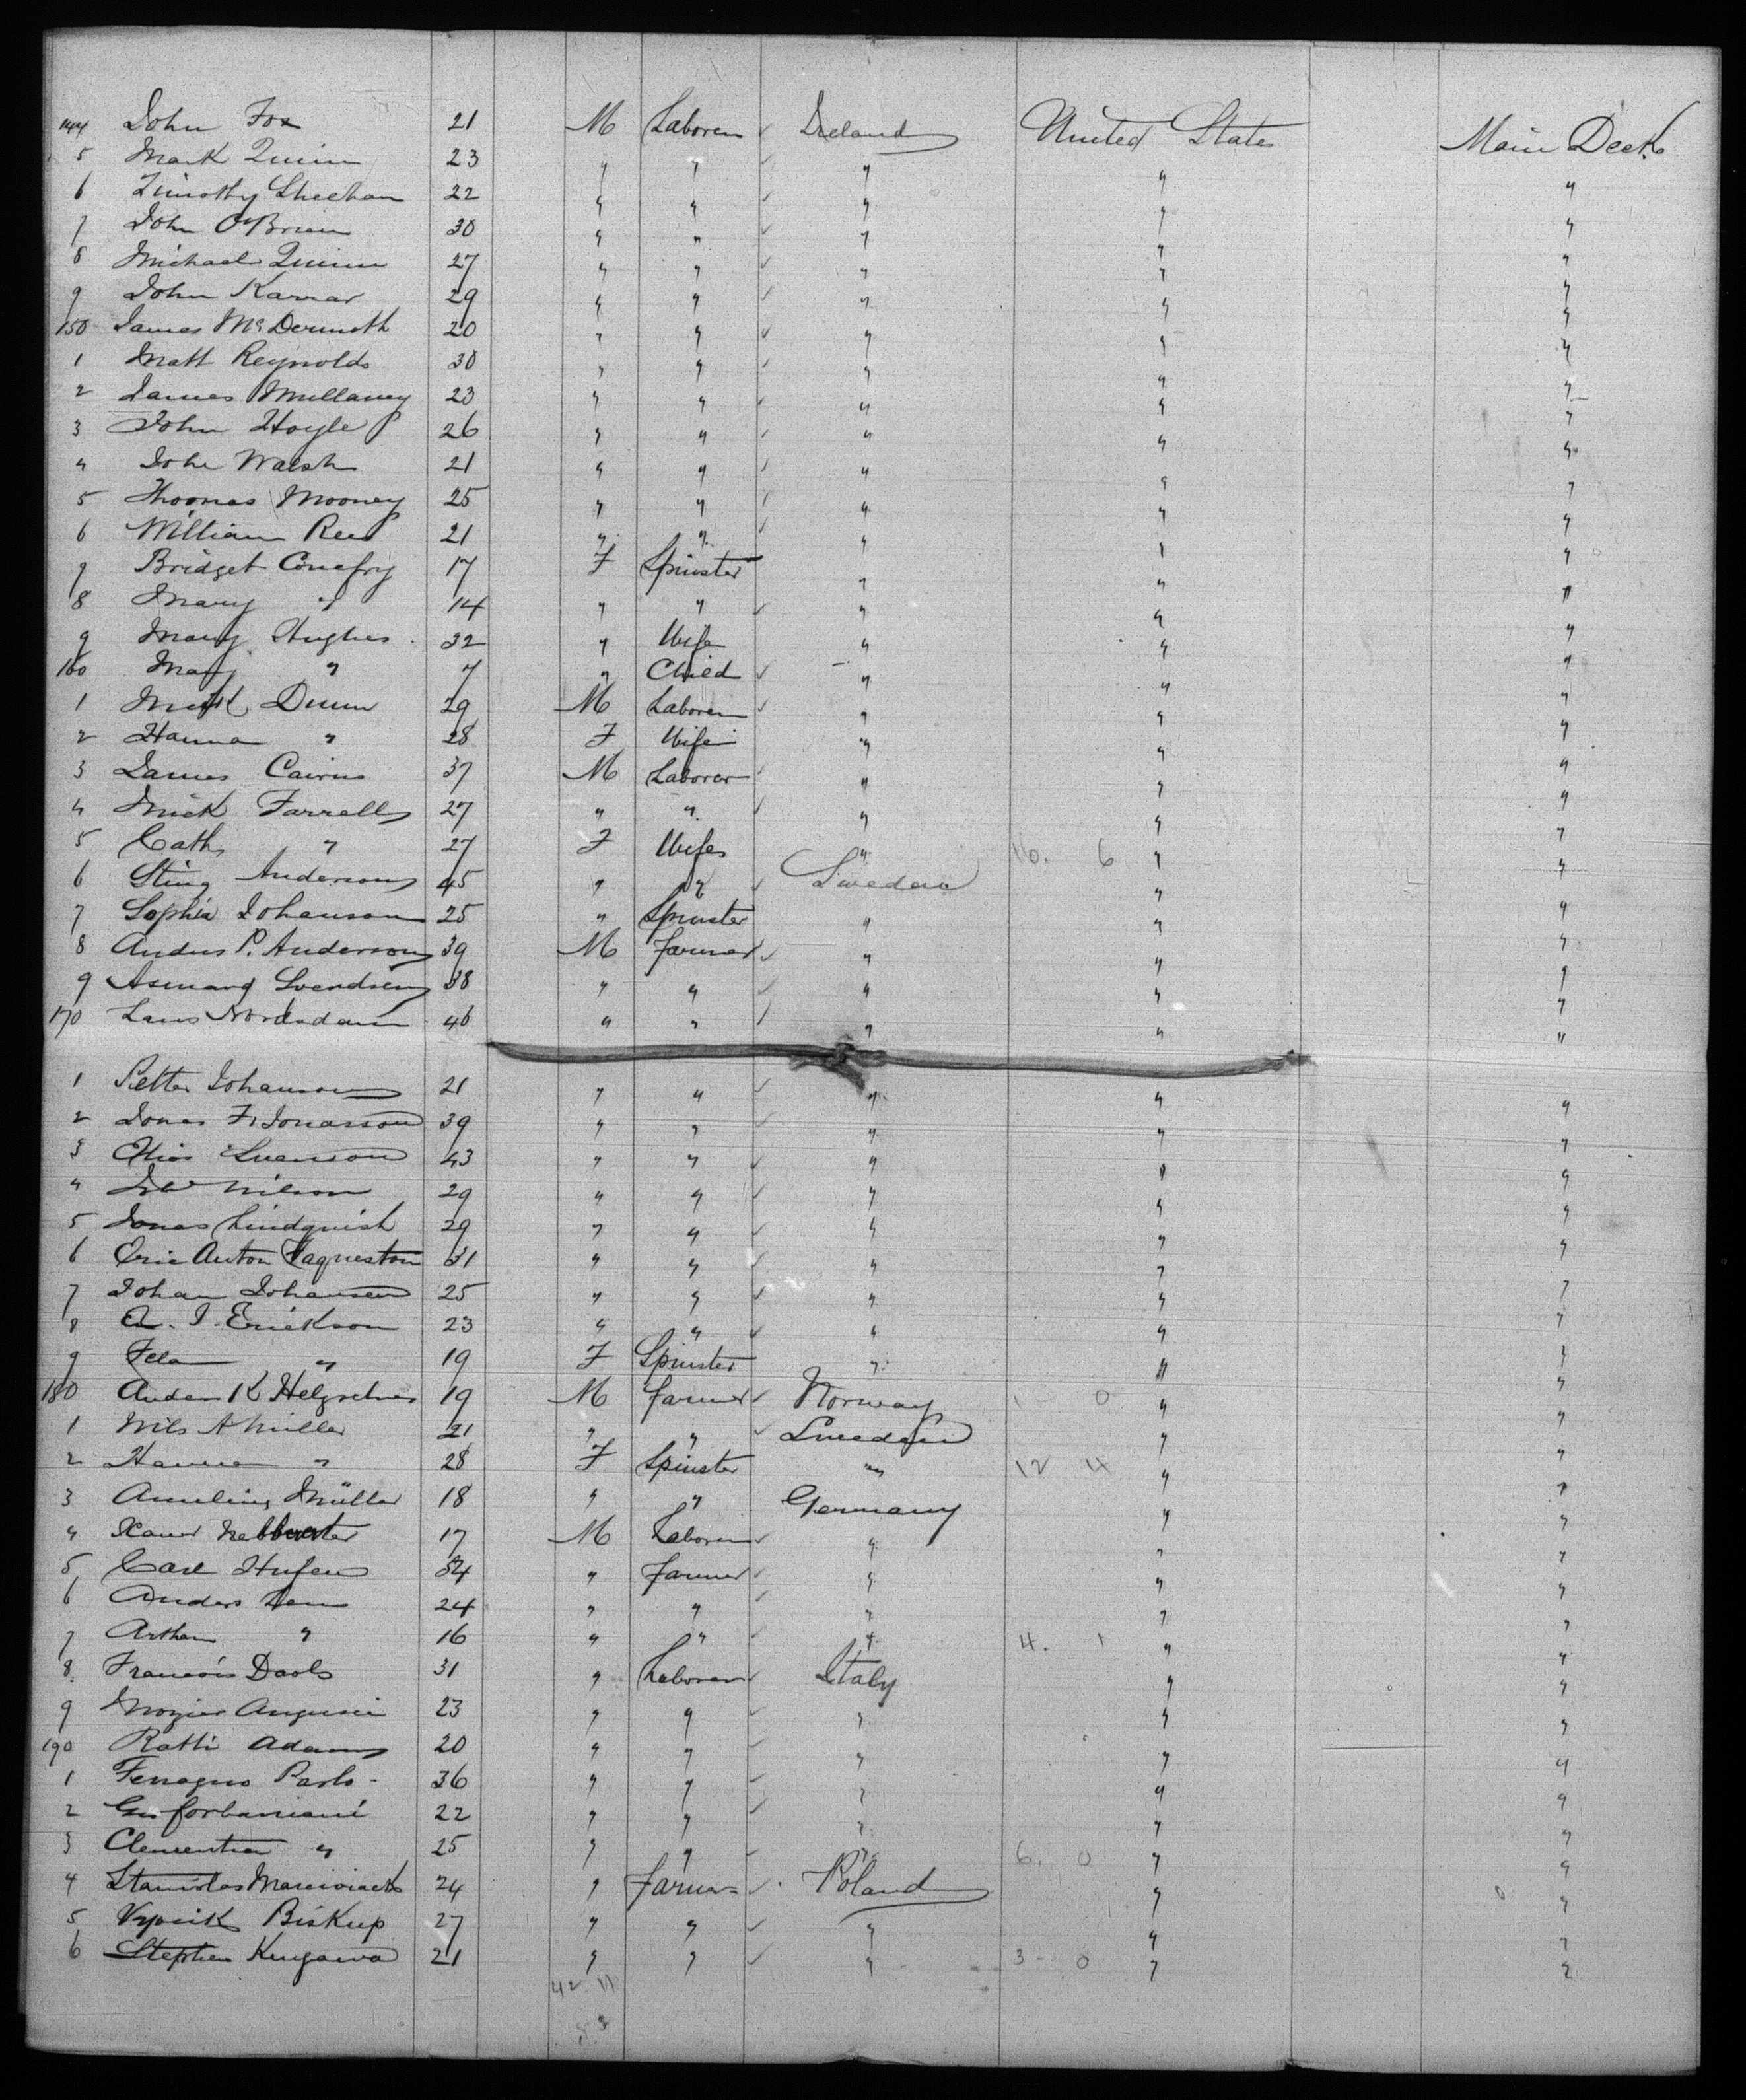 144 John Fox 21 M Laborer Ireland United States Main Deck
5 Mark Quinn 23 " " " " "
6 Timothy Sheehan 22 " " " " "
7 John O'Brien 30 " " " " "
8 Michael Quinn 27 " " " " "
9 John Karrar 29 " " " " "
150 James McDermoth 20 " " " " "
1 Matt Reynolds 30 " " " " "
2 James Mullaney 23 " " " " "
3 John Hoyle 26 " " " " "
4 John Walsh 21 " " " " "
5 Thomas Mooney 25 " " " " "
6 William 21 " " " " "
7 Bridget Conefry 17 F Spinster " " "
8 Mary " 14 " " " " "
9 Mary Hughes 32 " Wife " " "
160 Mary " 7 " Child " " "
1 Dunn 29 M Laborer " " "
2 Hanna " 28 F Wife " " "
3 James Cairns 37 M Laborer " " "
4 Mick Farrell 27 " " " " "
5 Cath " 27 F Wife " 10. 6 " "
6 Anderson 45 " " Sweden " "
7 Sophia Johanson 25 " Spinster " " "
8 Andus P. Anderson 39 M Farmer " " "
9 Svendsen 38 " " " " "
170 Lars 46 " " " " "
1 Petter Johanson 21 " " " " "
2 Jonas F. Jonasson 39 " " " " "
3 Svenson 43 " " " " "
4 Nilson 29 " " " " "
5 Jonas Lindquish 29 " " " " "
6 Eric Anton 31 " " " " "
7 Johan Johansen 25 " " " " "
8 A. J. Erickson 23 " " " " "
9 " 19 F Spinster " " "
180 K 19 M Farmer Norway 1 0 " "
1 Nils A Miller 21 " " Sweden " "
2 Hanna " 28 F Spinster " 12 4 " "
3 Müller 18 " " Germany " "
4 17 M Laborer " " "
5 Carl Hufen 54 " Farmer " " "
6 Anders 24 " " " " "
7 " 16 " " " 4. 1 " "
8 Francois 31 " Laborer Italy " "
9 23 " " " " "
190 Ratti Adam 20 " " " " "
1 36 " " " " "
2 22 " " " " "
3 Clementina " 25 " " " 6. 0 " "
4 Stanislas 24 " Farmer Poland " "
5 Biskup 27 " " " " "
6 Stephen 21 " " " 3 - 0 " "
42 11